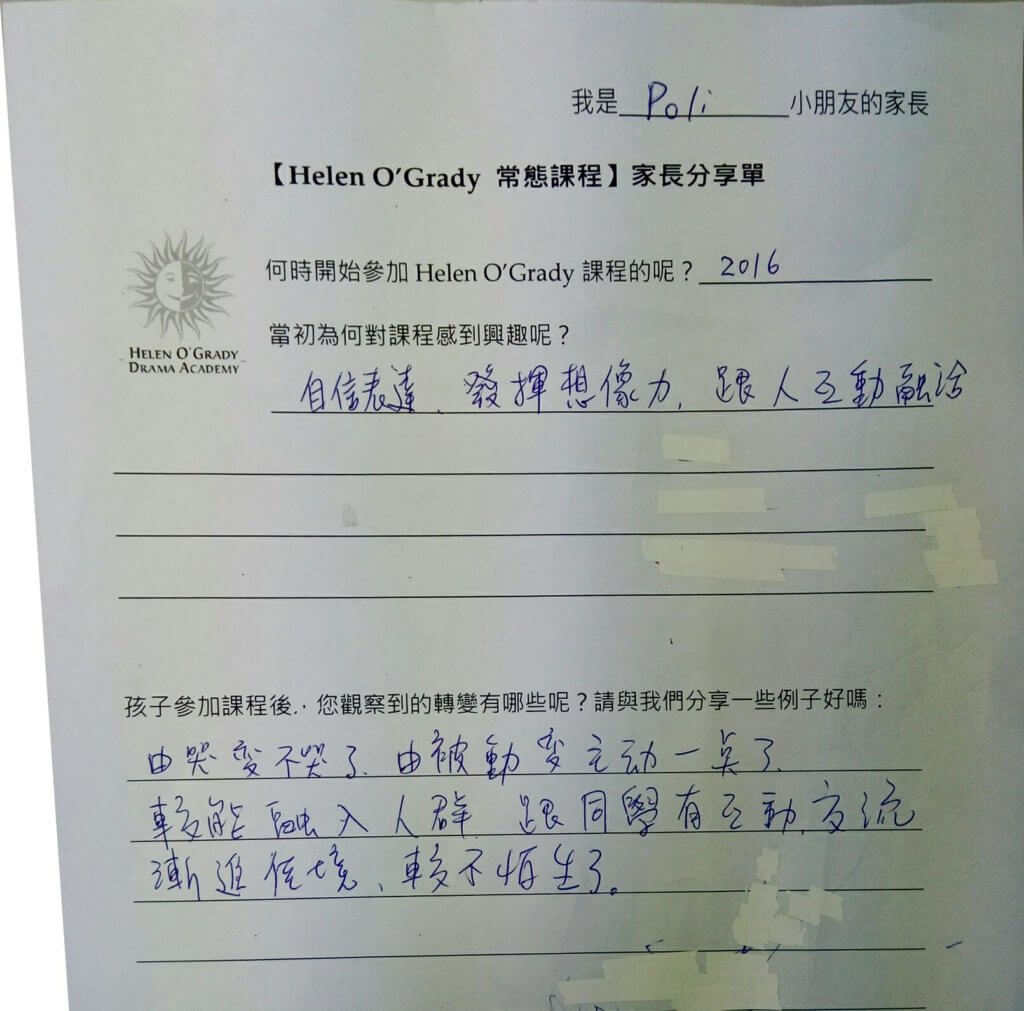 我是 Poli 小朋友的家長
【Helen O'Grady 常態課程】家長分享單
何時開始參加 Helen O'Grady 課程的呢？ 2016
當初為何對課程感到興趣呢？
HELEN O'GRADY
DRAMA ACADEMY
自信表達、發揮想像力、跟人互動融洽
孩子參加課程後，您觀察到的轉變有哪些呢？請與我們分享一些例子好嗎：
由哭變不哭了、由被動变主动一點了、
較能融入人群、跟同學有互動、交流
漸進佳境、較不怕生了。